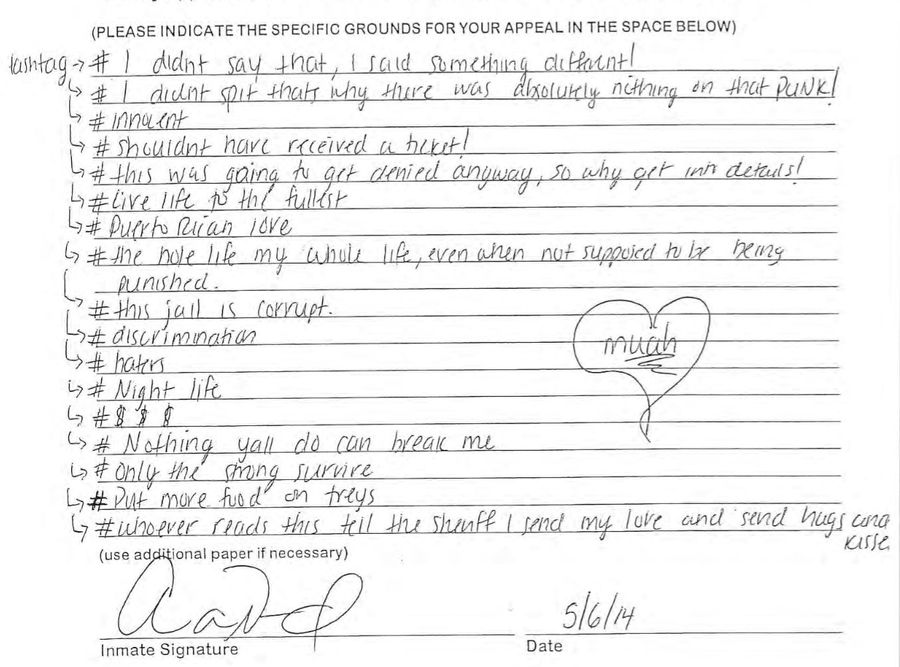 (PLEASE INDICATE THE SPECIFIC GROUNDS FOR YOUR APPEAL IN THE SPACE BELOW)
Hashtag → # I didnt say that, I said something different!
# I didnt spit thats why there was absolutely nothing on that PUNK!
# innocent
# shouldnt have received a ticket!
# this was going to get denied anyway, so why get into details!
# Live life to the fullest
# Puerto Rican love
# the hole life my whole life, even when not supposed to be being
punished.
# this jail is corrupt.
# discrimination
# haters
# Night life
# $ $ $
# Nothing yall do can break me
# Only the strong survive
# Put more food on treys
# whoever reads this tell the sheriff I send my love and send hugs and
kisse
muah
(use additional paper if necessary)
5/6/14
Inmate Signature
Date